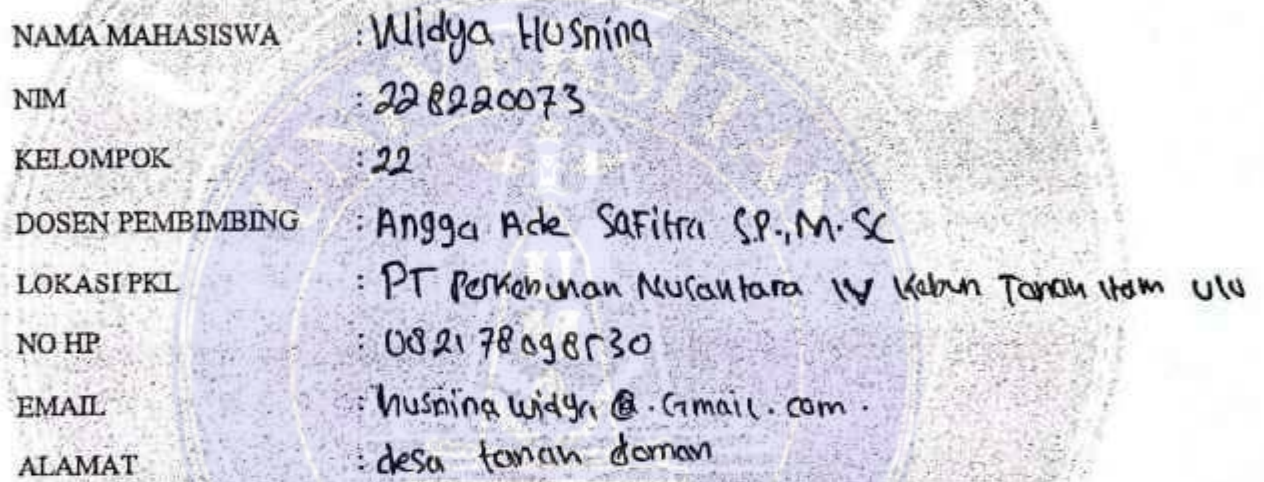 NAMA MAHASISWA : Widya Husnina
NIM : 228220073
KELOMPOK : 22
DOSEN PEMBIMBING : Angga Ade Safitra S.P., M.Sc
LOKASI PKL : PT Perkebunan Nusantara IV Kebun Tanah Itam Ulu
NO HP : 082178098530
EMAIL : husninawidya@.Gmail.com.
ALAMAT : desa tanah
UNIVERSITAS